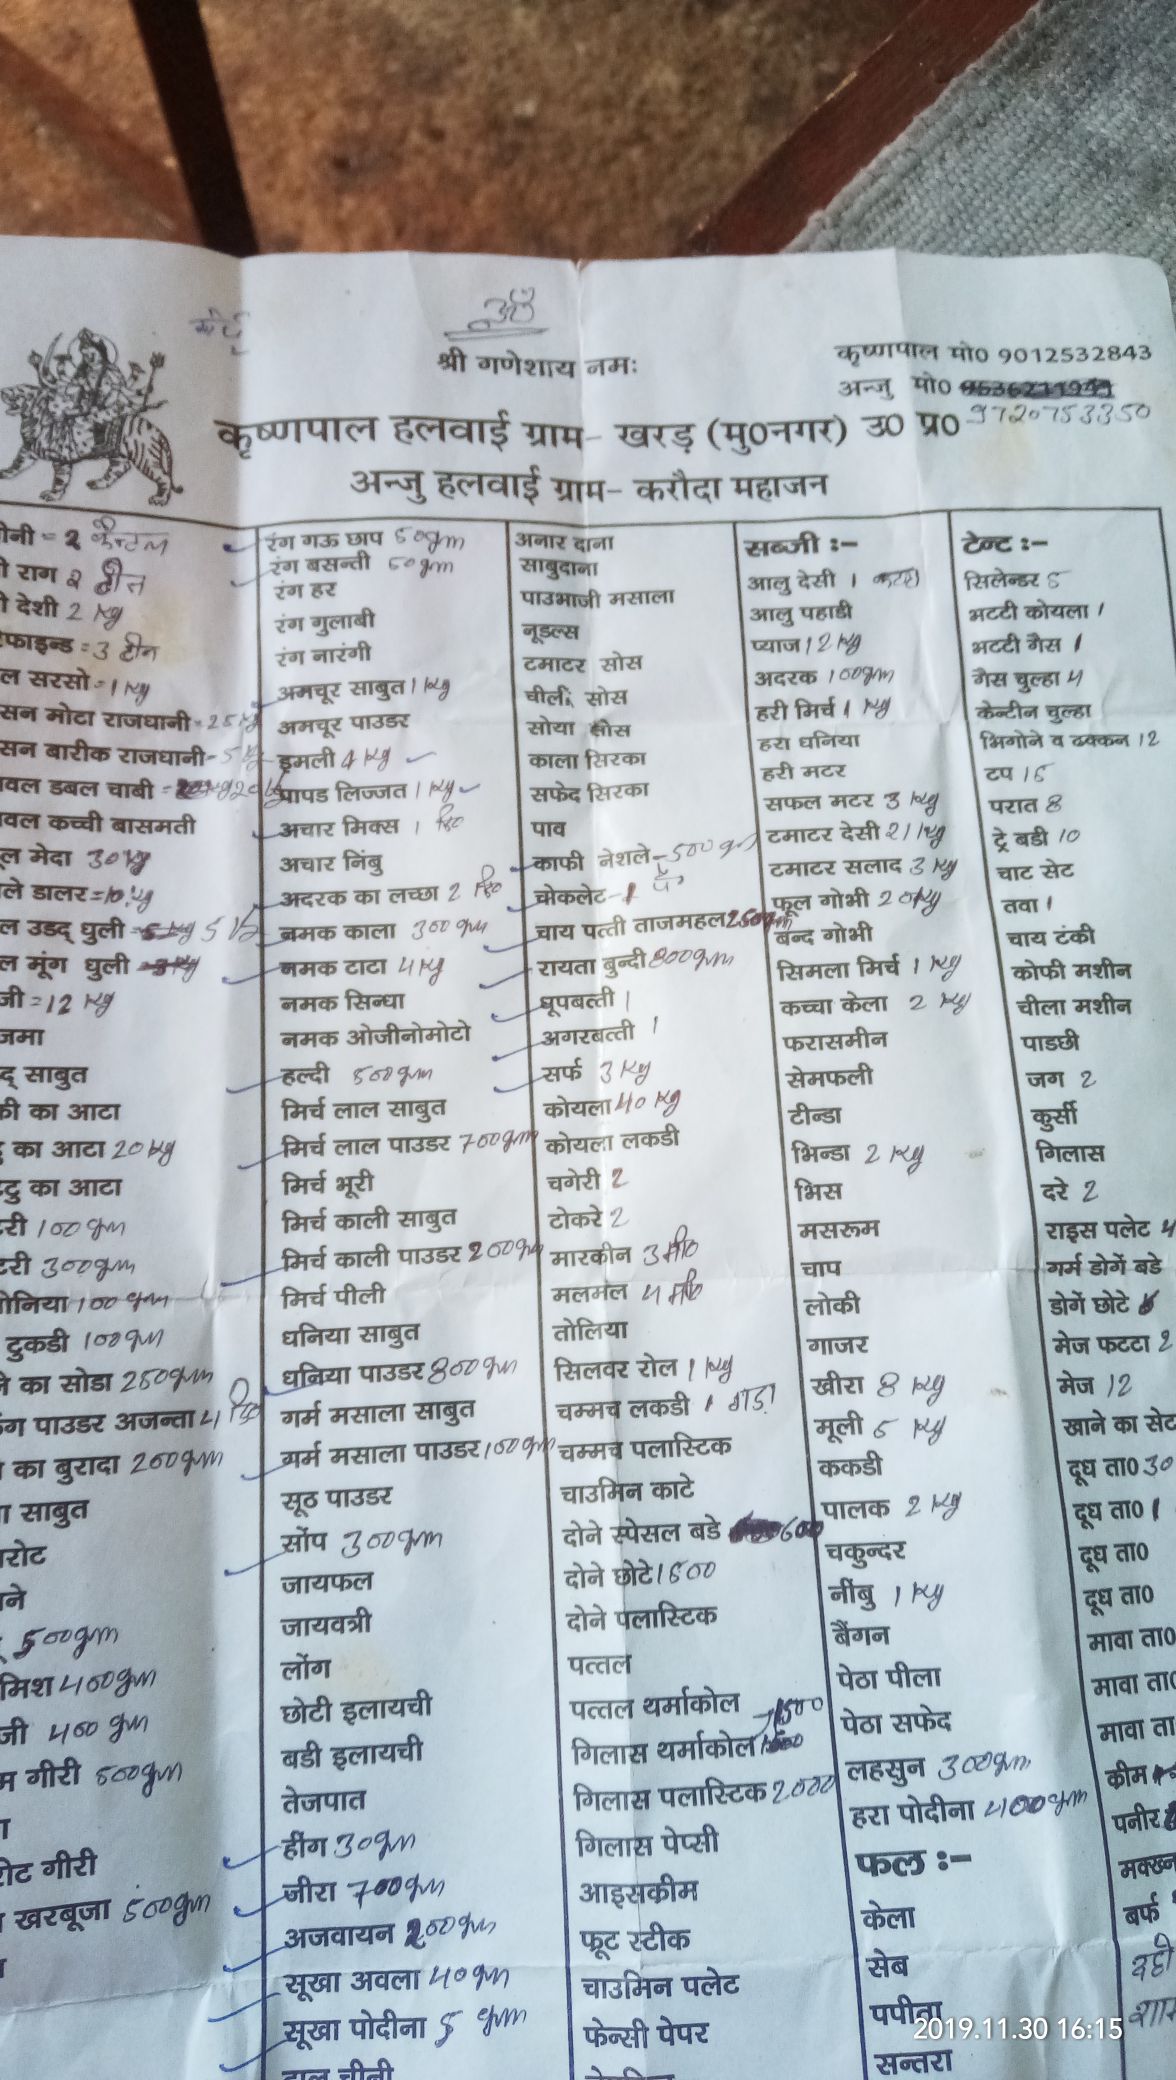 ॐ
श्री गणेशाय नमः
कृष्णपाल मो0 9012532843
अन्जु मो0
9720753350
कृष्णपाल हलवाई ग्राम- खरड़ (मु0नगर) उ0 प्र0
अन्जु हलवाई ग्राम- करौदा महाजन
ीनी = 2
राग 2 टीन
देशी 2 Kg
फाइन्ड = 3 टीन
ल सरसो = 1 Kg
सन मोटा राजधानी = 25 Kg
सन बारीक राजधानी- 5
वल डबल चाबी =
वल कच्ची बासमती
ल मेदा 30 Kg
ले डालर = 10 Kg
ल उडद् धुली 5
ल मूंग धुली
जी = 12 Kg
जमा
द् साबुत
की का आटा
का आटा 20 kg
टु का आटा
री 100 gm
री 300 gm
ोनिया 100 gm
टुकडी 100 gm
का सोडा 250 gm
ग पाउडर अजन्ता 4
का बुरादा 200 gm
साबुत
रोट
ने
500 gm
मिश 400 gm
जी 400 gm
गीरी 500 gm
ोट गीरी
खरबूजा 500 gm
रंग गऊ छाप 50 gm
रंग बसन्ती 50 gm
रंग हर
रंग गुलाबी
रंग नारंगी
अमचूर साबुत 1 Kg
अमचूर पाउडर
इमली 4 Kg
पापड लिज्जत 1 Kg
अचार मिक्स 1
अचार निंबु
अदरक का लच्छा 2
नमक काला 300 gm
नमक टाटा 4 Kg
नमक सिन्धा
नमक ओजीनोमोटो
हल्दी 500 gm
मिर्च लाल साबुत
मिर्च लाल पाउडर 700 gm
मिर्च भूरी
मिर्च काली साबुत
मिर्च काली पाउडर 200 gm
मिर्च पीली
धनिया साबुत
धनिया पाउडर 800 gm
गर्म मसाला साबुत
गर्म मसाला पाउडर 100 gm
सूठ पाउडर
सोंप 300 gm
जायफल
जायवत्री
लोंग
छोटी इलायची
बडी इलायची
तेजपात
हींग 30 gm
जीरा 700 gm
अजवायन 200 gm
सूखा अवला 40 gm
सूखा पोदीना 5 gm
दाल चीनी
अनार दाना
साबुदाना
पाउभाजी मसाला
नूडल्स
टमाटर सोस
चीली सोस
सोया सोस
काला सिरका
सफेद सिरका
पाव
काफी नेशले - 500 gm
चोकलेट - 1
चाय पत्ती ताजमहल 250 gm
रायता बुन्दी 800 gm
धूपबत्ती 1
अगरबत्ती 1
सर्फ 3 Kg
कोयला 40 Kg
कोयला लकडी
चगेरी 2
टोकरे 2
मारकीन 3 मी0
मलमल 4 मी0
तोलिया
सिलवर रोल 1 Kg
चम्मच लकडी 1
चम्मच पलास्टिक
चाउमिन काटे
दोने स्पेसल बडे 600
दोने छोटे 1500
दोने पलास्टिक
पत्तल
पत्तल थर्माकोल 1500
गिलास थर्माकोल
गिलास पलास्टिक 2000
गिलास पेप्सी
आइसकीम
फ्रूट स्टीक
चाउमिन पलेट
फेन्सी पेपर
सब्जी :-
आलु देसी 1 कटटा
आलु पहाडी
प्याज 12 Kg
अदरक 100 gm
हरी मिर्च 1 Kg
हरा धनिया
हरी मटर
सफल मटर 3 Kg
टमाटर देसी 21 Kg
टमाटर सलाद 3 Kg
फूल गोभी 20 Kg
बन्द गोभी
सिमला मिर्च 1 Kg
कच्चा केला 2 Kg
फरासमीन
सेमफली
टीन्डा
भिन्डा 2 Kg
भिस
मसरूम
चाप
लोकी
गाजर
खीरा 8 Kg
मूली 5 Kg
ककडी
पालक 2 Kg
चकुन्दर
नींबु 1 Kg
बैंगन
पेठा पीला
पेठा सफेद
लहसुन 300 gm
हरा पोदीना 400 gm
फल :-
केला
सेब
पपीता
सन्तरा
टेन्ट :-
सिलेन्डर 5
भटटी कोयला 1
भटटी गैस 1
गैस चुल्हा 4
केन्टीन चुल्हा
भिगोने व ढक्कन 12
टप 15
परात 8
ट्रे बडी 10
चाट सेट
तवा 1
चाय टंकी
कोफी मशीन
चीला मशीन
पाडछी
जग 2
कुर्सी
गिलास
दरे 2
राइस पलेट 4
गर्म डोगें बडे
डोगें छोटे
मेज फटटा 2
मेज 12
खाने का सेट
दूध ता0 30
दूध ता0 1
दूध ता0
दूध ता0
मावा ता0
मावा ता
मावा ता
कीम
पनीर
मक्खन
बर्फ
दही
2019.11.30 16:15